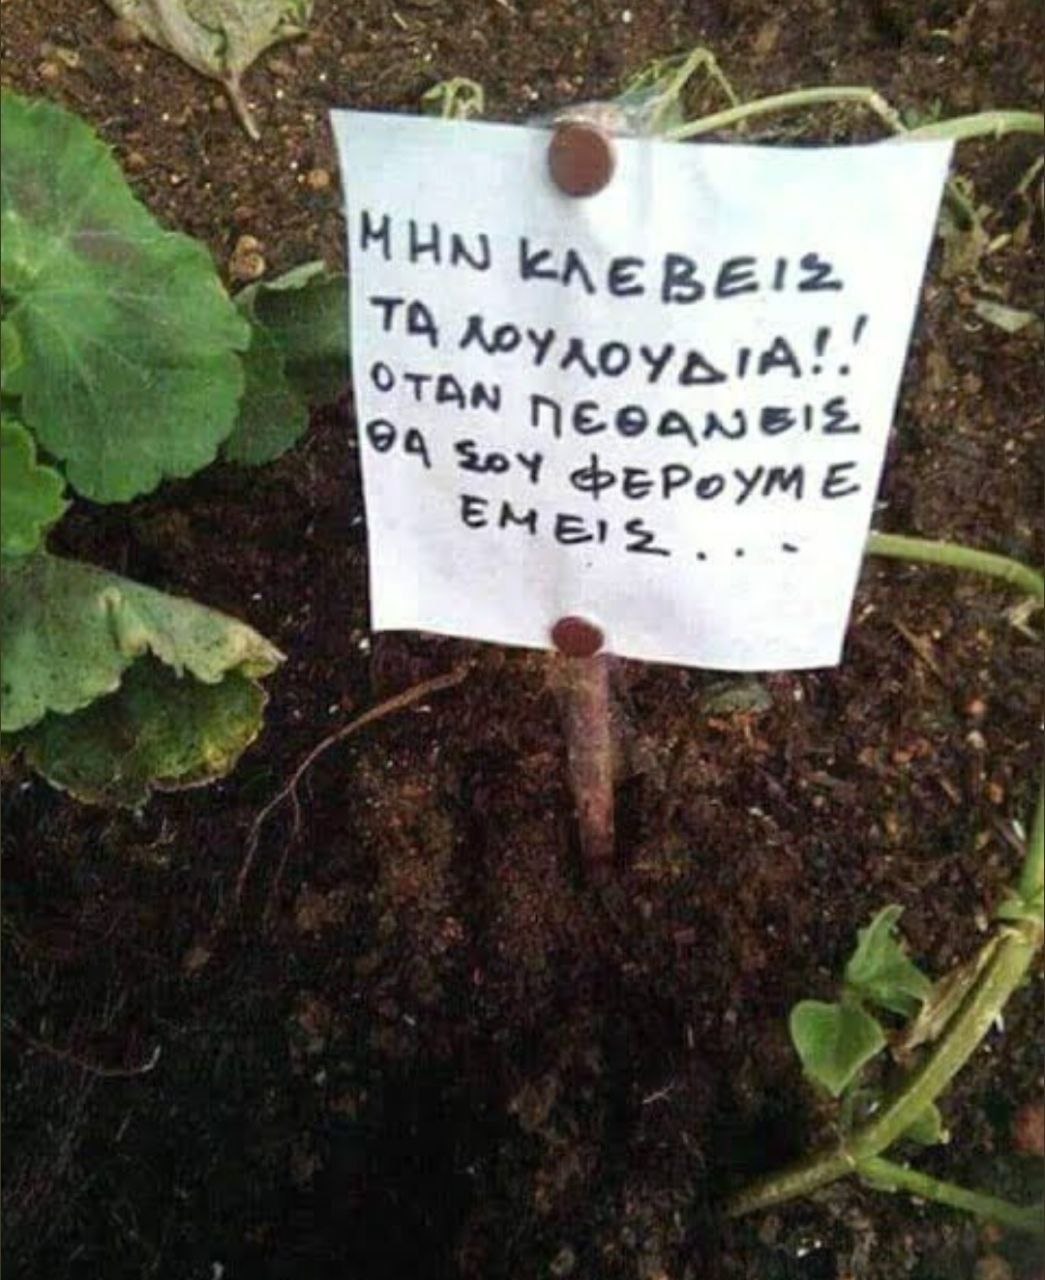 ΜΗΝ ΚΛΕΒΕΙΣ
ΤΑ ΛΟΥΛΟΥΔΙΑ!!
ΟΤΑΝ ΠΕΘΑΝΕΙΣ
ΘΑ ΣΟΥ ΦΕΡΟΥΜΕ
ΕΜΕΙΣ...